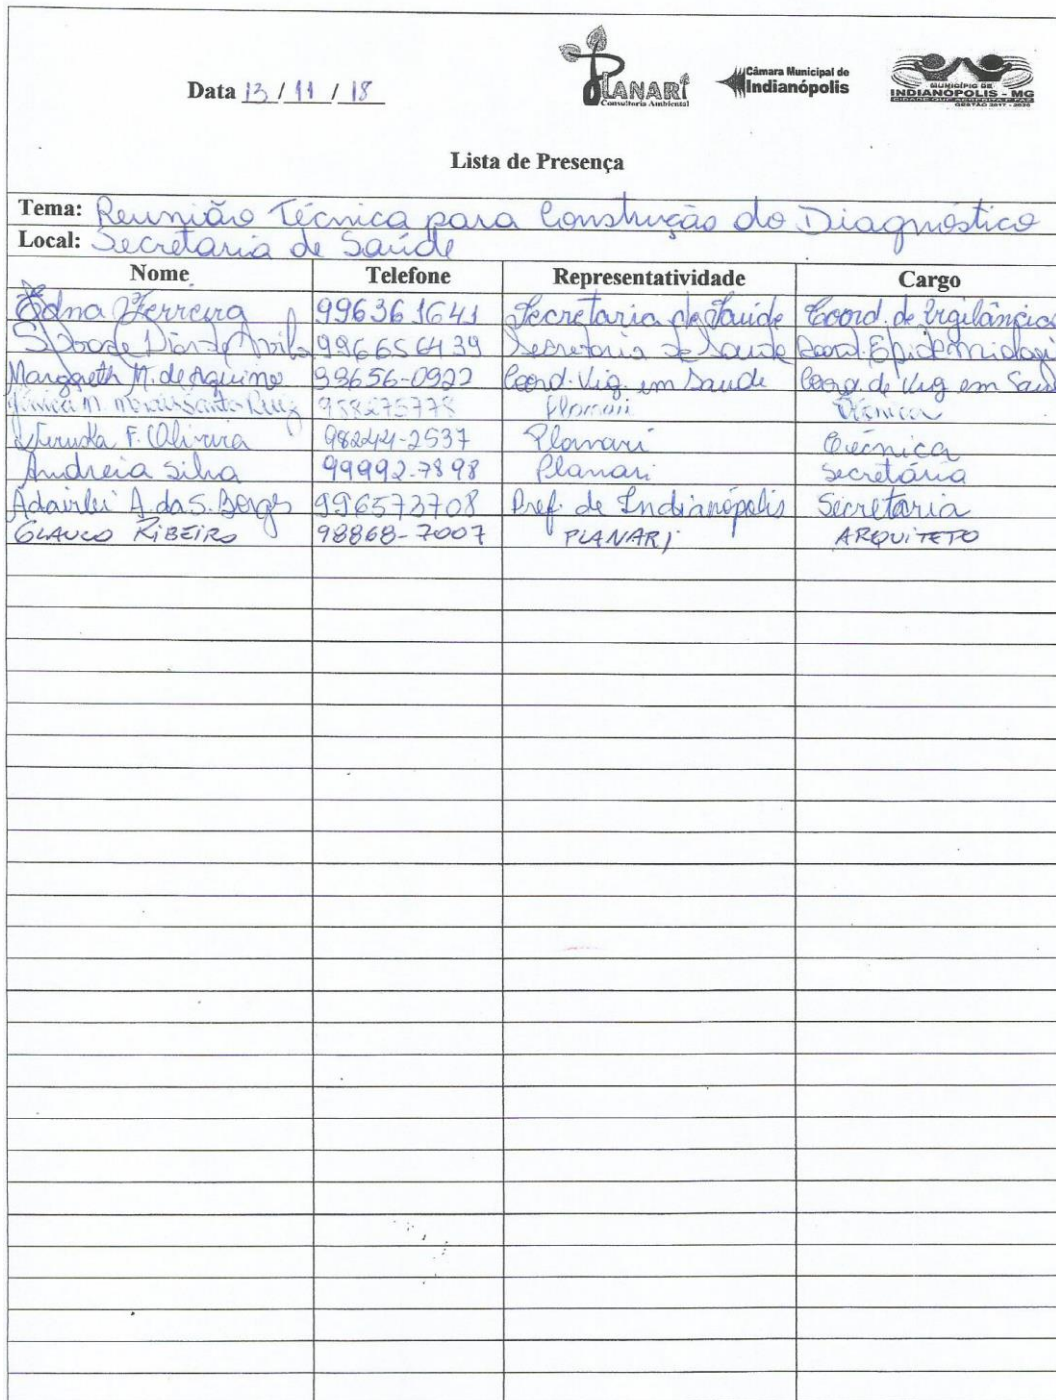 Data 13 / 11 / 18
PLANARI
Consultoria Ambiental
Câmara Municipal de
Indianópolis
MUNICÍPIO DE
INDIANÓPOLIS - MG
CIDADE QUE ACREDITA E FAZ
GESTÃO 2017 - 2020
Lista de Presença
Tema: Reunião Técnica para Construção do Diagnóstico
Local: Secretaria de Saúde
Nome Telefone Representatividade Cargo
Edna Ferreira 996361641 Secretaria de Saúde Coord. de Vigilância
996656439 Secretaria de Saúde Coord. Epidemiologi
Margareth M. de Aquino 99656-0922 Coord. Vig. em Saude Coord. de Vig em Saud
Planari Técnica
F. Oliveira 98244-2537 Planari Técnica
Andreia Silva 99992-7898 Planari Secretária
Adairlei A. da S. Borges 996573708 Pref. de Indianópolis Secretaria
GLAUCO RIBEIRO 98868-7007 PLANARI ARQUITETO